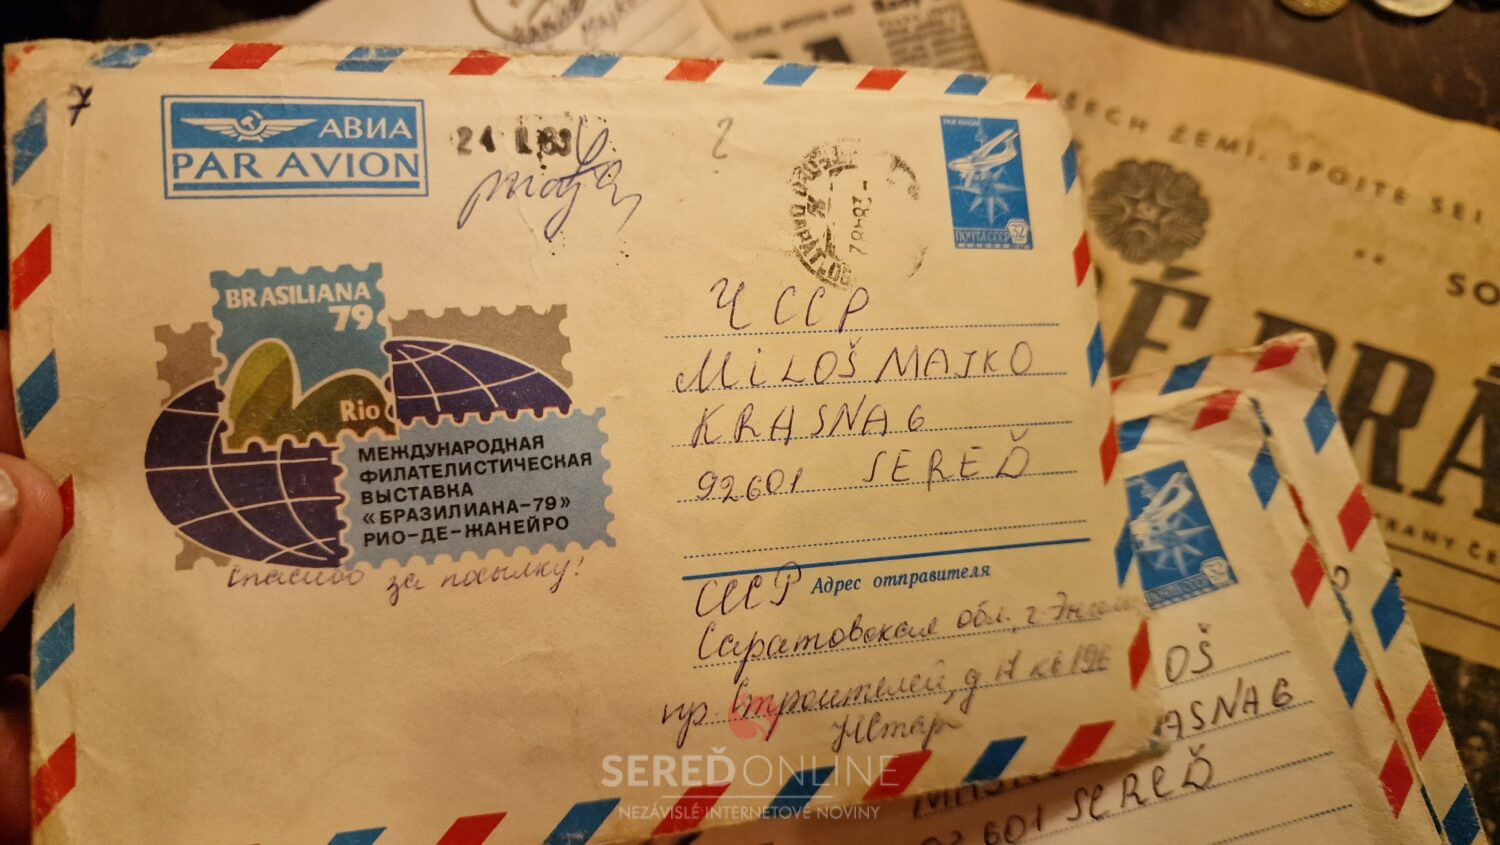 7
АВИА
PAR AVION
PAR AVION
ПОЧТА СССР 32
BRASILIANA
79
Rio
МЕЖДУНАРОДНАЯ
ФИЛАТЕЛИСТИЧЕСКАЯ
ВЫСТАВКА
«БРАЗИЛИАНА-79»
РИО-ДЕ-ЖАНЕЙРО
Спасибо за посылку!
ЧССР
MILOŠ MAJKO
KRASNA 6
92601 SEREĎ
СССР Адрес отправителя
Саратовская обл., г.
пр. Строителей, д
VŠECH ZEMÍ, SPOJTE SE!
SO
É PRÁ
OŠ
ASNA 6
601 SEREĎ
SEREĎONLINE
NEZÁVISLÉ INTERNETOVÉ NOVINY